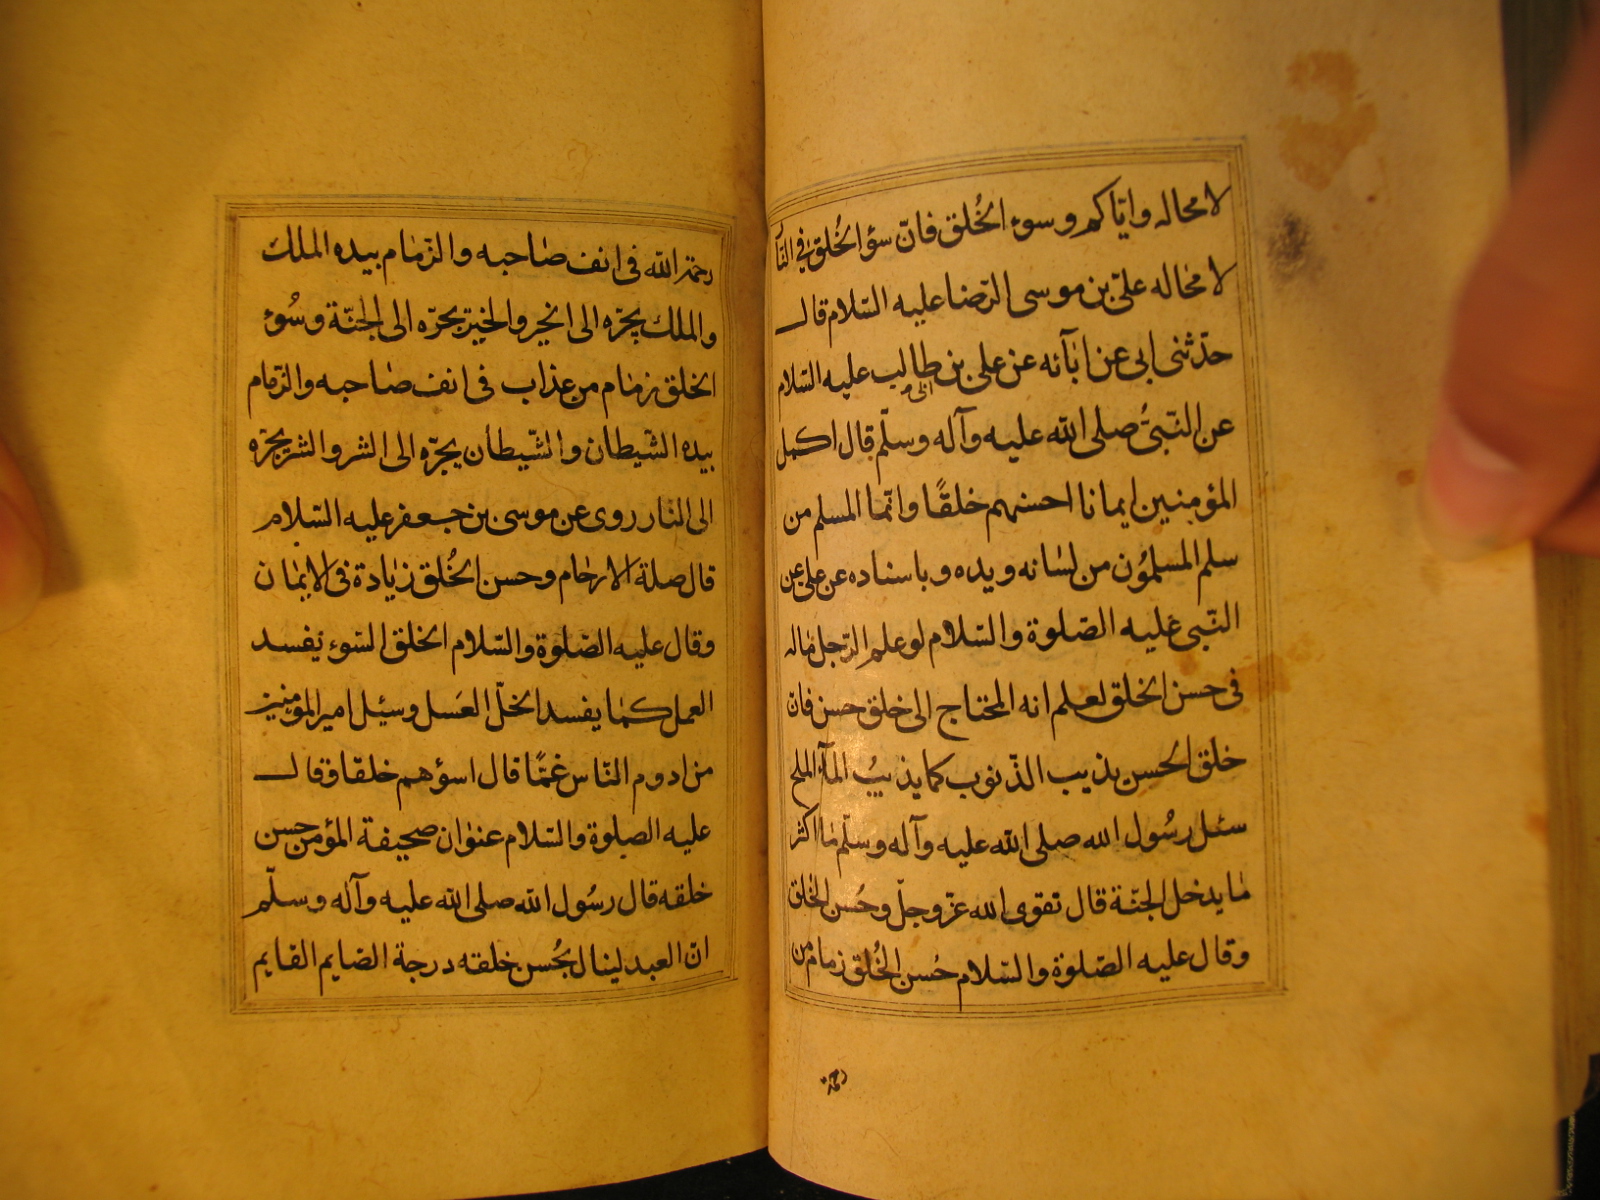 لا محاله وايّاكم وسوء الخُلق فانّ سؤ الخُلق في النّار
لا محاله علىّ بن موسى الرّضا عليه السّلام قال
حدّثنى ابى عن اٰبآئه عن على بن ابى طالب عليه السّلام
عن النّبىّ صلى الله عليه وآله وسلّم قال اكمل
المؤمنين ايمانا احسنهم خلقًا وانّما المسلم من
سلم المسلمُون من لسٰانه ويده وباسناده عن على عن
النّبى عليه الصّلوة والسّلام لو علم الرّجل مٰاله
فى حسن الخلق لعلم انه المحتاج الى خلق حسن فانّ
خلق الحسن يذيب الذّنوب كما يذيبُ المآء الملح
سئل رسُول الله صلى الله عليه وآله وسلّم مٰا اكثر
مٰا يدخل الجنّة قال تقوى الله عزّ وجلّ وحُسن الخلق
وقال عليه الصّلوة والسّلام حُسن الخُلق زمام من
رحمة الله فى انف صٰاحبه والزّمٰام بيده الملك
والملك يجرّه الى الخير والخير يجرّه الى الجنّة وسُوء
الخلق زمٰام من عذاب فى انف صٰاحبه والزّمام
بيده الشّيطان والشّيطان يجرّه الى الشر والشر يجرّه
الى النار روى عن موسى بن جعفر عليه السّلام
قال صلة الارحٰام وحسن الخُلق زيٰادة فى الايمٰان
وقال عليه الصّلوة والسّلام الخلق السّوء يفسد
العمل كمٰا يفسد الخلّ العَسل وسئل امير المؤمنين
من ادوم النّاس غمًّا قال اسؤهم خلقا وقال
عليه الصلوة والسّلام عنوٰان صحيفة المؤمن حسن
خلقه قال رسُول الله صلى الله عليه وآله وسلّم
انّ العبد لينال بحُسن خلقه درجة الصّايم القايم